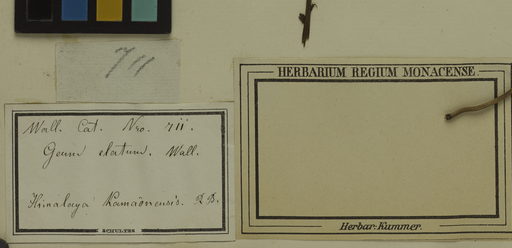 711
HERBARIUM REGIUM MONACENSE.
Wall. Cat. Nro. 711.
Geum elatum. Wall.
Himalaya Kamaonensis. R. B.
SCHULTES
Herbar: Kummer.